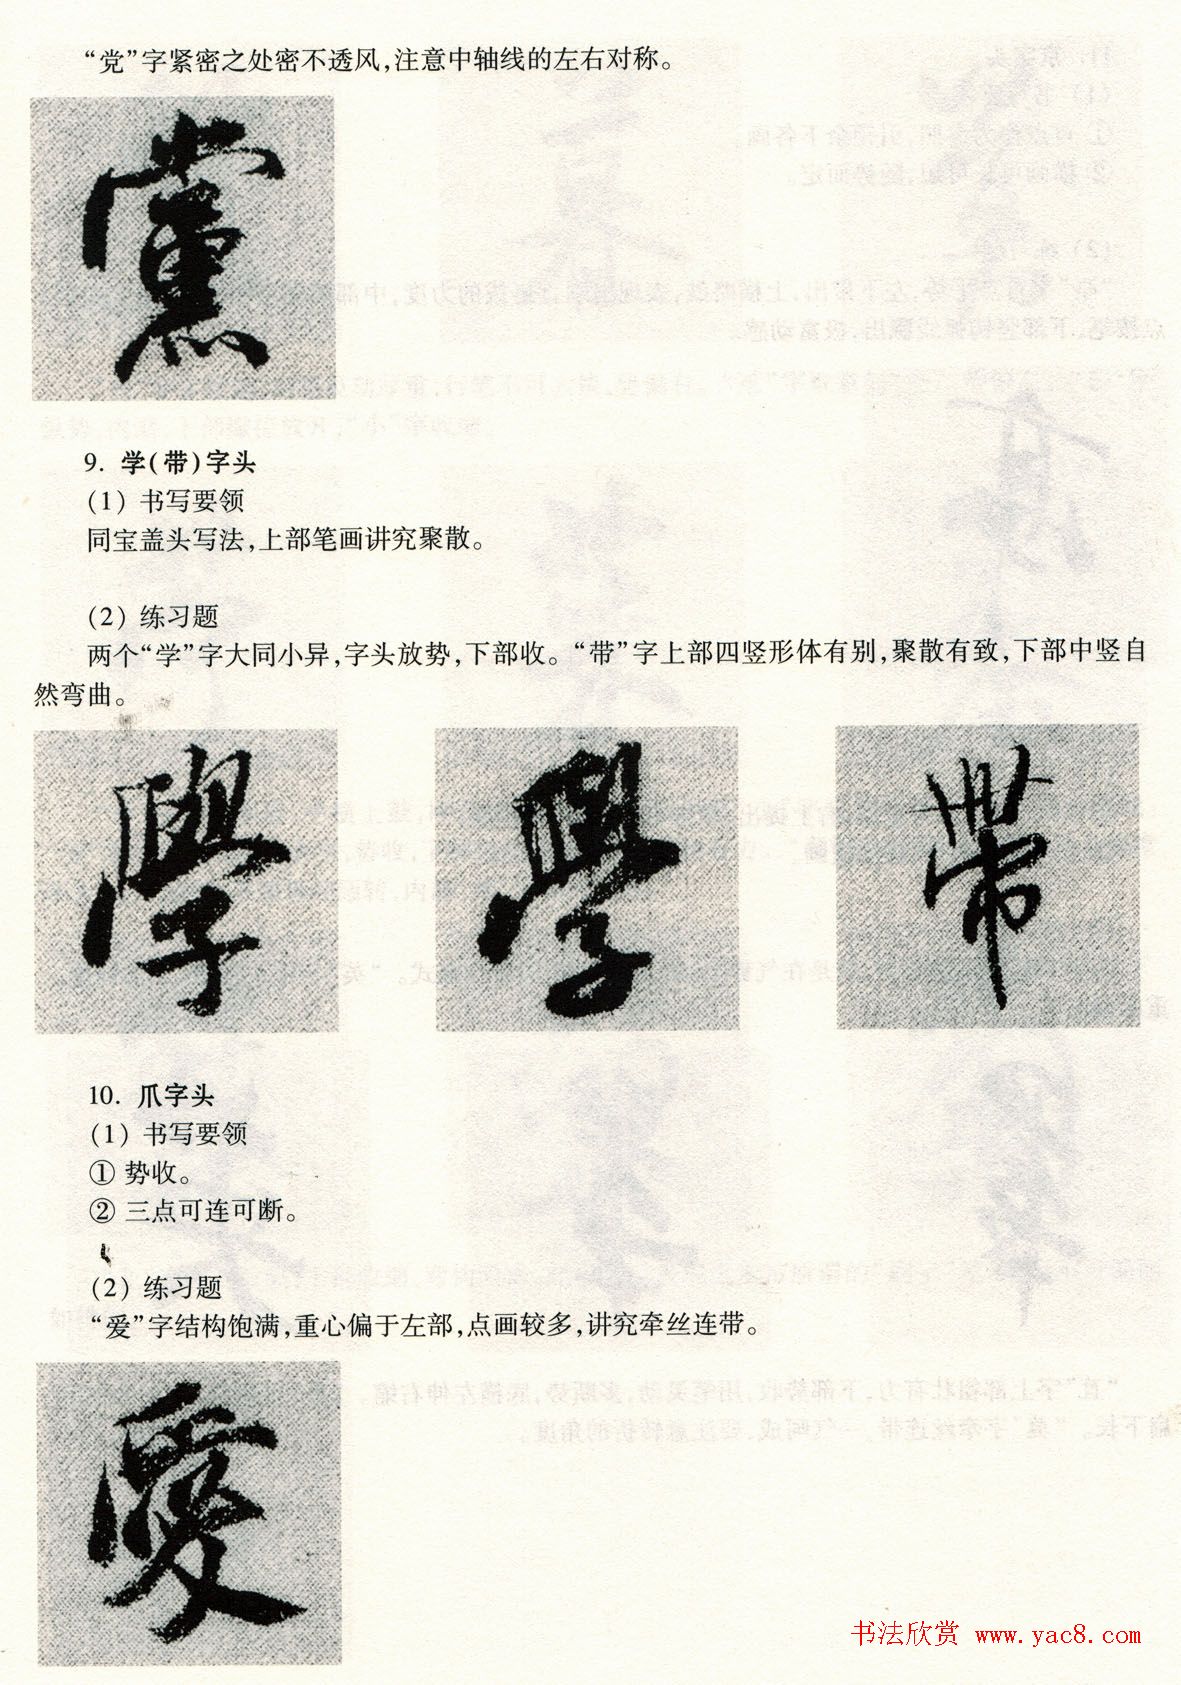 “党”字紧密之处密不透风，注意中轴线的左右对称。
黨
9. 学(带)字头
(1) 书写要领
同宝盖头写法，上部笔画讲究聚散。
(2) 练习题
两个“学”字大同小异，字头放势，下部收。“带”字上部四竖形体有别，聚散有致，下部中竖自
然弯曲。
學 學 帶
10. 爪字头
(1) 书写要领
① 势收。
② 三点可连可断。
(2) 练习题
“爱”字结构饱满，重心偏于左部，点画较多，讲究牵丝连带。
愛
书法欣赏 www.yac8.com